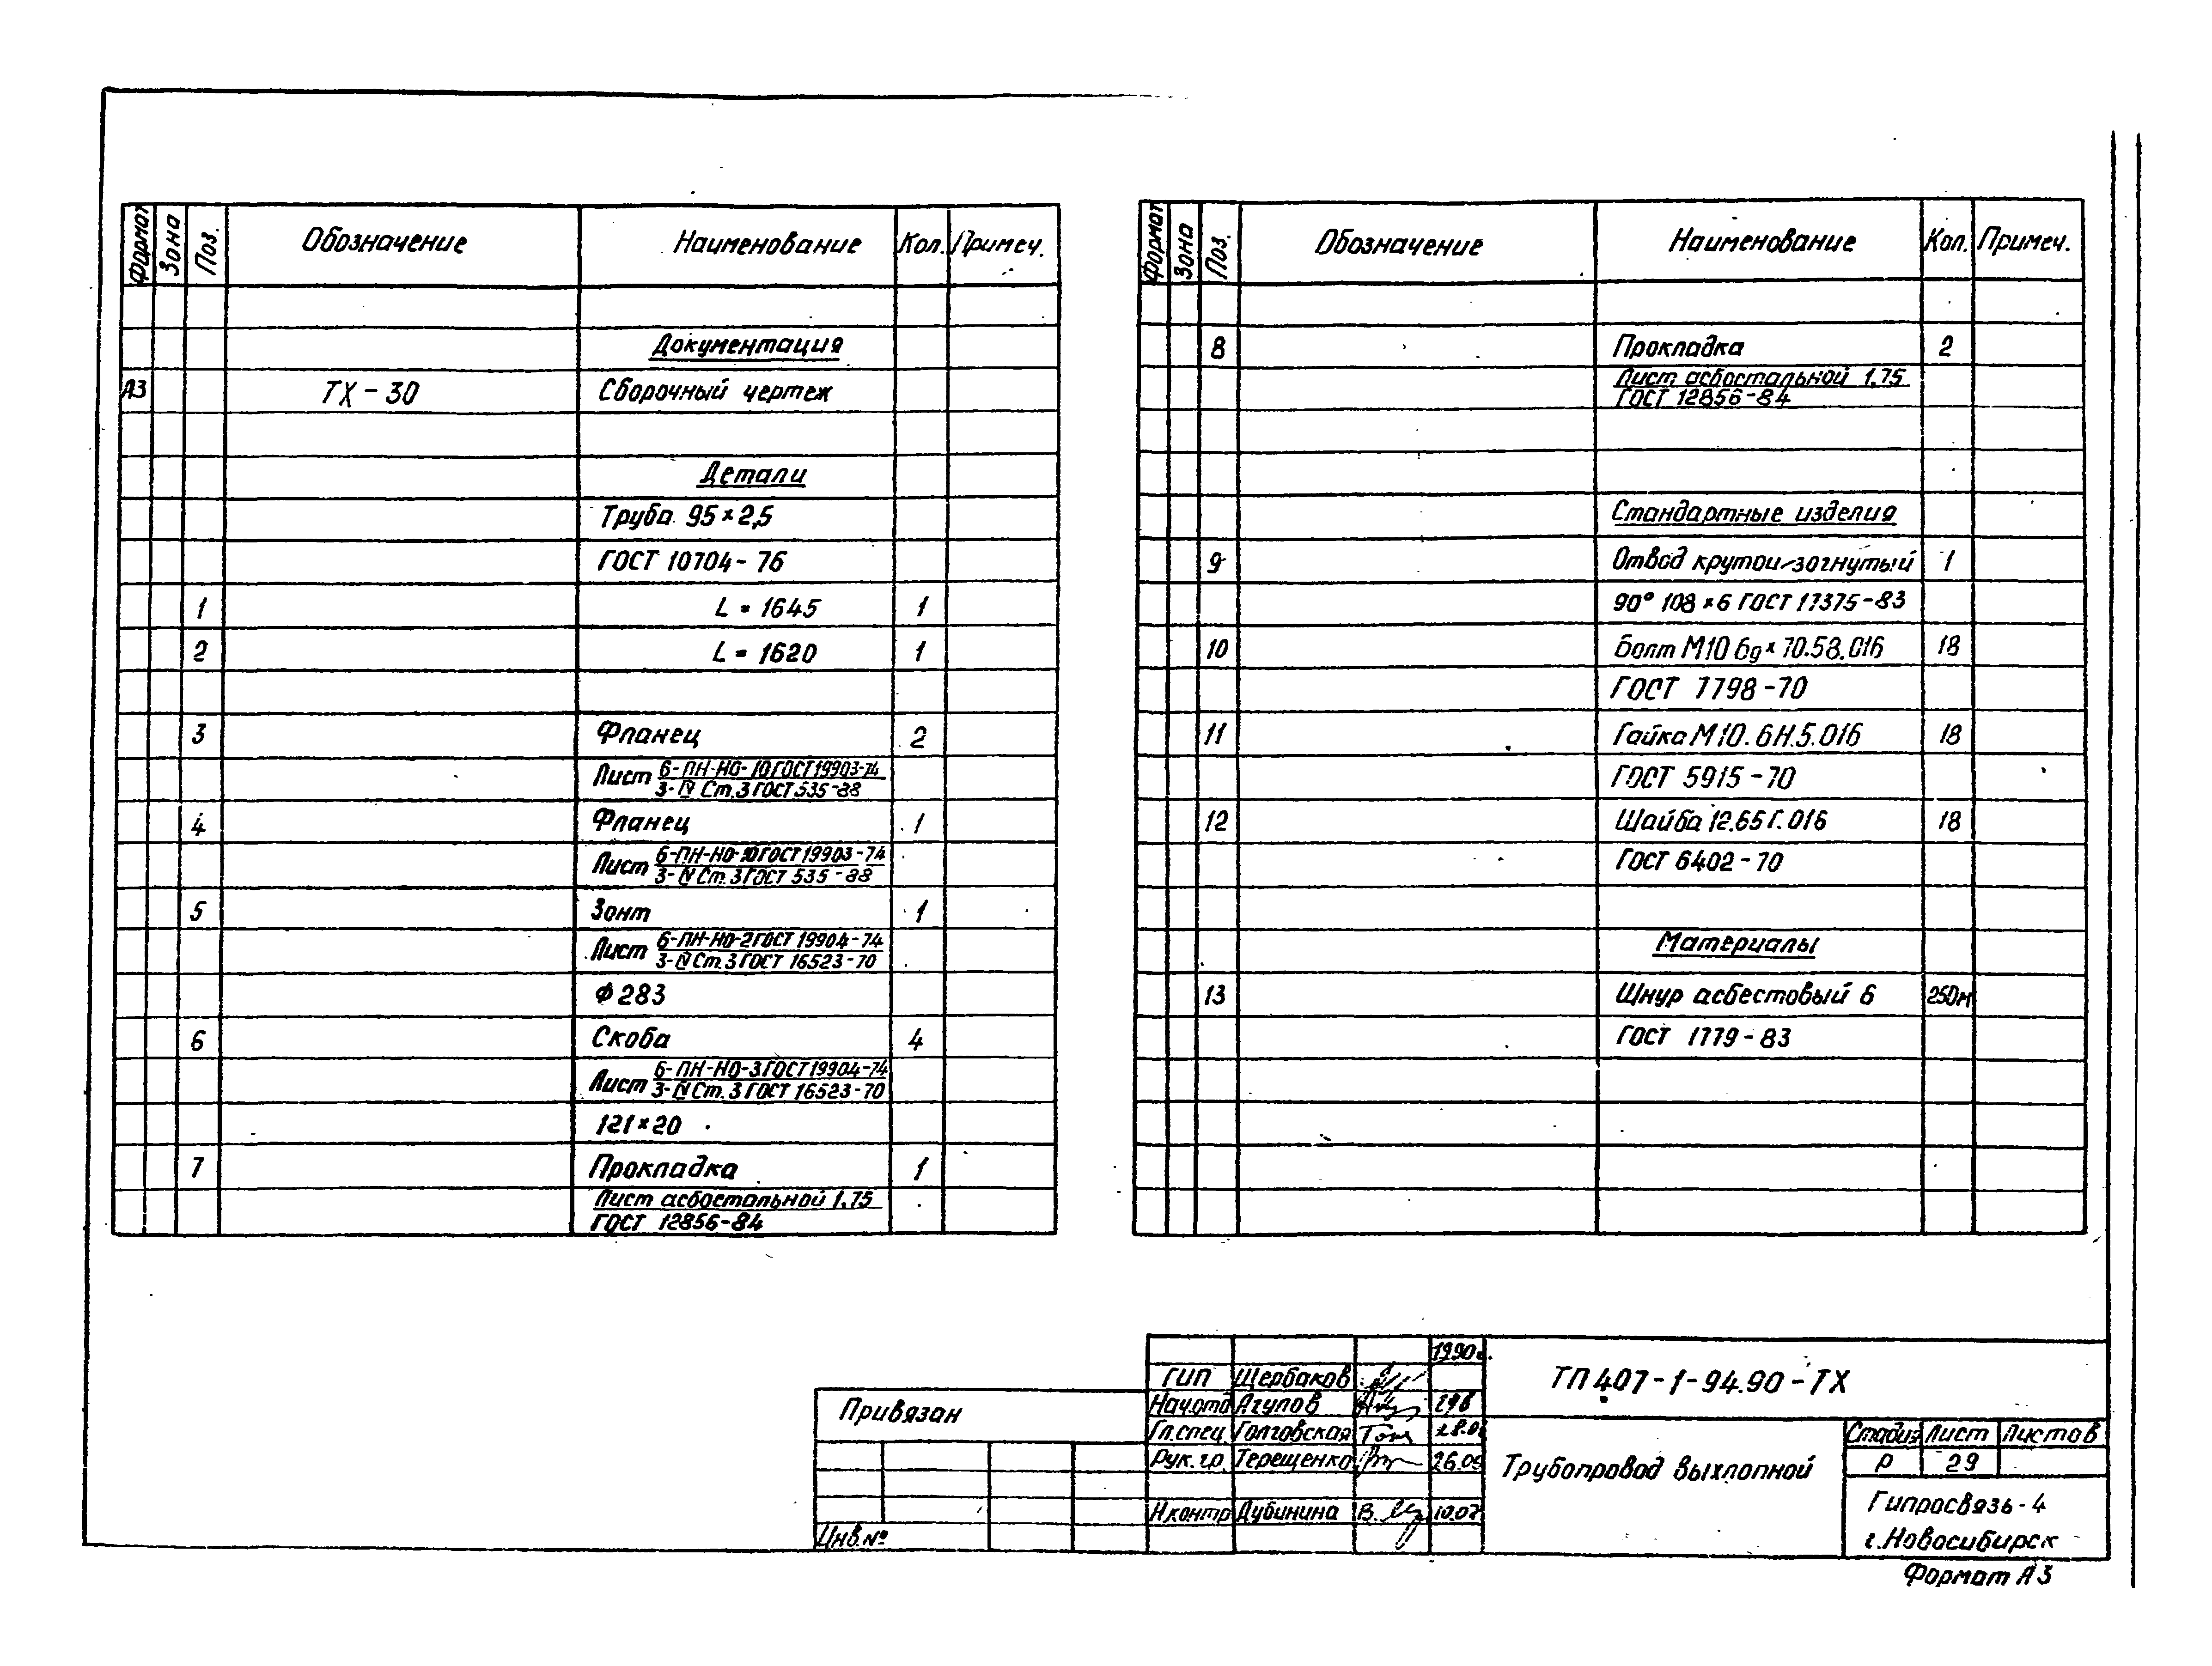 Формат Зона Поз. Обозначение Наименование Кол. Примеч.
Документация
А3 ТХ-30 Сборочный чертеж
Детали
Труба 95×2,5
ГОСТ 10704-76
1 L = 1645 1
2 L = 1620 1
3 Фланец 2
Лист 6-ПН-НО-10 ГОСТ 19903-74
3-IV Ст.3 ГОСТ 535-88
4 Фланец 1
Лист 6-ПН-НО-10 ГОСТ 19903-74
3-IV Ст.3 ГОСТ 535-88
5 Зонт 1
Лист 6-ПН-НО-2 ГОСТ 19904-74
3-IV Ст.3 ГОСТ 16523-70
Ф 283
6 Скоба 4
Лист 6-ПН-НО-3 ГОСТ 19904-74
3-IV Ст.3 ГОСТ 16523-70
121×20
7 Прокладка 1
Лист асбостальной 1,75
ГОСТ 12856-84
Формат Зона Поз. Обозначение Наименование Кол. Примеч.
8 Прокладка 2
Лист асбостальной 1,75
ГОСТ 12856-84
Стандартные изделия
9 Отвод крутоизогнутый 1
90° 108×6 ГОСТ 17375-83
10 Болт М10 6g×70.58.016 18
ГОСТ 7798-70
11 Гайка М10.6Н.5.016 18
ГОСТ 5915-70
12 Шайба 12.65Г.016 18
ГОСТ 6402-70
Материалы
13 Шнур асбестовый 6 250м
ГОСТ 1779-83
1990г.
ГИП Щербаков
Нач.отд Агулов
Гл.спец. Голговская 28.0
Рук.гр. Терещенко 26.09
Н.контр Дубинина 10.07
Привязан
Инв.№
ТП 407-1-94.90-ТХ
Трубопровод выхлопной
Стадия Лист Листов
Р 29
Гипросвязь-4
г.Новосибирск
Формат А3